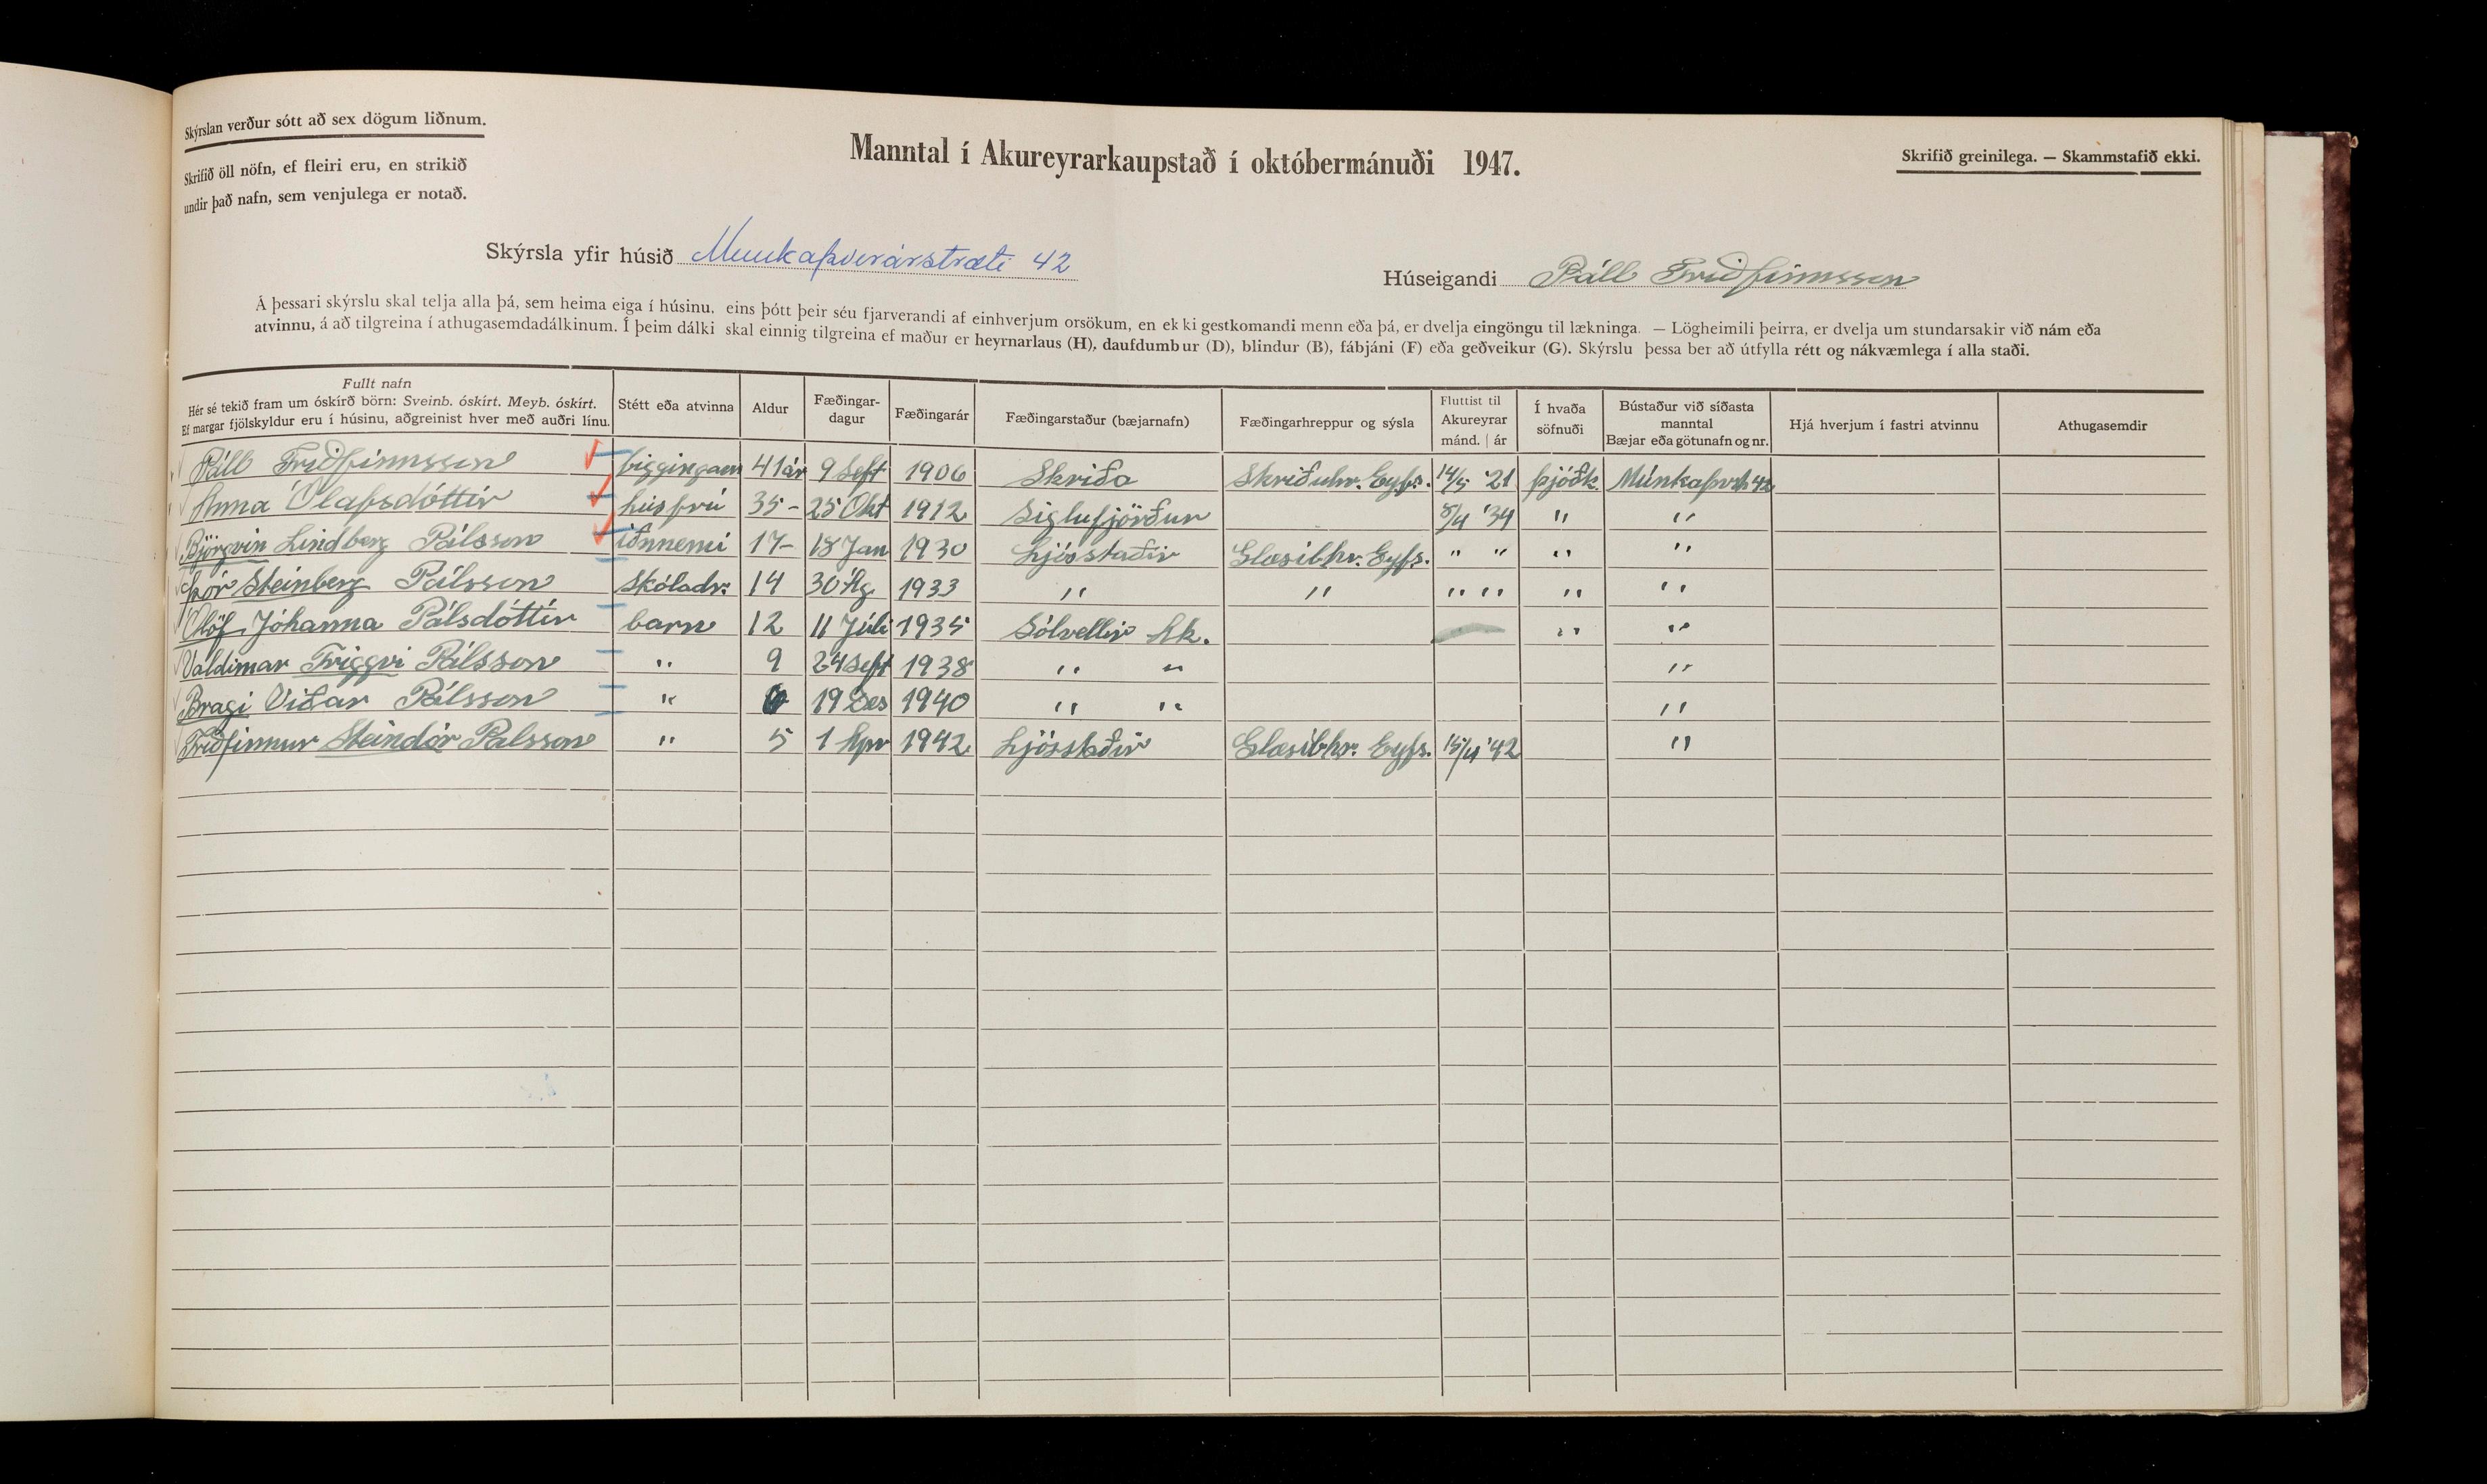 Skýrslan verður sótt að sex dögum liðnum.
Skrifið öll nöfn, ef fleiri eru, en strikið
undir það nafn, sem venjulega er notað.
Manntal í Akureyrarkaupstað í októbermánuði 1947.
Skrifið greinilega. — Skammstafið ekki.
Skýrsla yfir húsið Munkaþverárstræti 42
Húseigandi Páll Friðfinnsson
Á þessari skýrslu skal telja alla þá, sem heima eiga í húsinu, eins þótt þeir séu fjarverandi af einhverjum orsökum, en ekki gestkomandi menn eða þá, er dvelja eingöngu til lækninga. — Lögheimili þeirra, er dvelja um stundarsakir við nám eða
atvinnu, á að tilgreina í athugasemdadálkinum. Í þeim dálki skal einnig tilgreina ef maður er heyrnarlaus (H), daufdumbur (D), blindur (B), fábjáni (F) eða geðveikur (G). Skýrslu þessa ber að útfylla rétt og nákvæmlega í alla staði.
Fullt nafn
Hér sé tekið fram um óskírð börn: Sveinb. óskírt. Meyb. óskírt.
Ef margar fjölskyldur eru í húsinu, aðgreinist hver með auðri línu.
Stétt eða atvinna
Aldur
Fæðingar-
dagur
Fæðingarár
Fæðingarstaður (bæjarnafn)
Fæðingarhreppur og sýsla
Fluttist til
Akureyrar
mánd. | ár
Í hvaða
söfnuði
Bústaður við síðasta
manntal
Bæjar eða götunafn og nr.
Hjá hverjum í fastri atvinnu
Athugasemdir
Páll Friðfinnsson biggingam 41 ár 9 Sept 1906 Skriða Skriðuhr. Eyfs. 14/5 '21 þjóðk. Múnkaþvst 42
Anna Ólafsdóttir húsfrú 35 - 25 Okt 1912 Siglufjörður 8/4 '34 " "
Björgvin Lindberg Pálsson iðnnemi 17 - 18 Jan 1930 Ljósstaðir Glæsibhr. Eyfs. " " " "
Þór Steinberg Pálsson Skóladr. 14 30 Ág 1933 " " " " " "
Ólöf Jóhanna Pálsdóttir barn 12 11 Júli 1935 Sólvellir Ak. " "
Valdimar Triggvi Pálsson " 9 24 Sept 1938 " " "
Bragi Viðar Pálsson " 6 19 Des 1940 " " "
Friðfinnur Steindór Pálsson " 5 1 Apr 1942 Ljósstaðir Glæsibhr. Eyfs. 15/4 '42 "